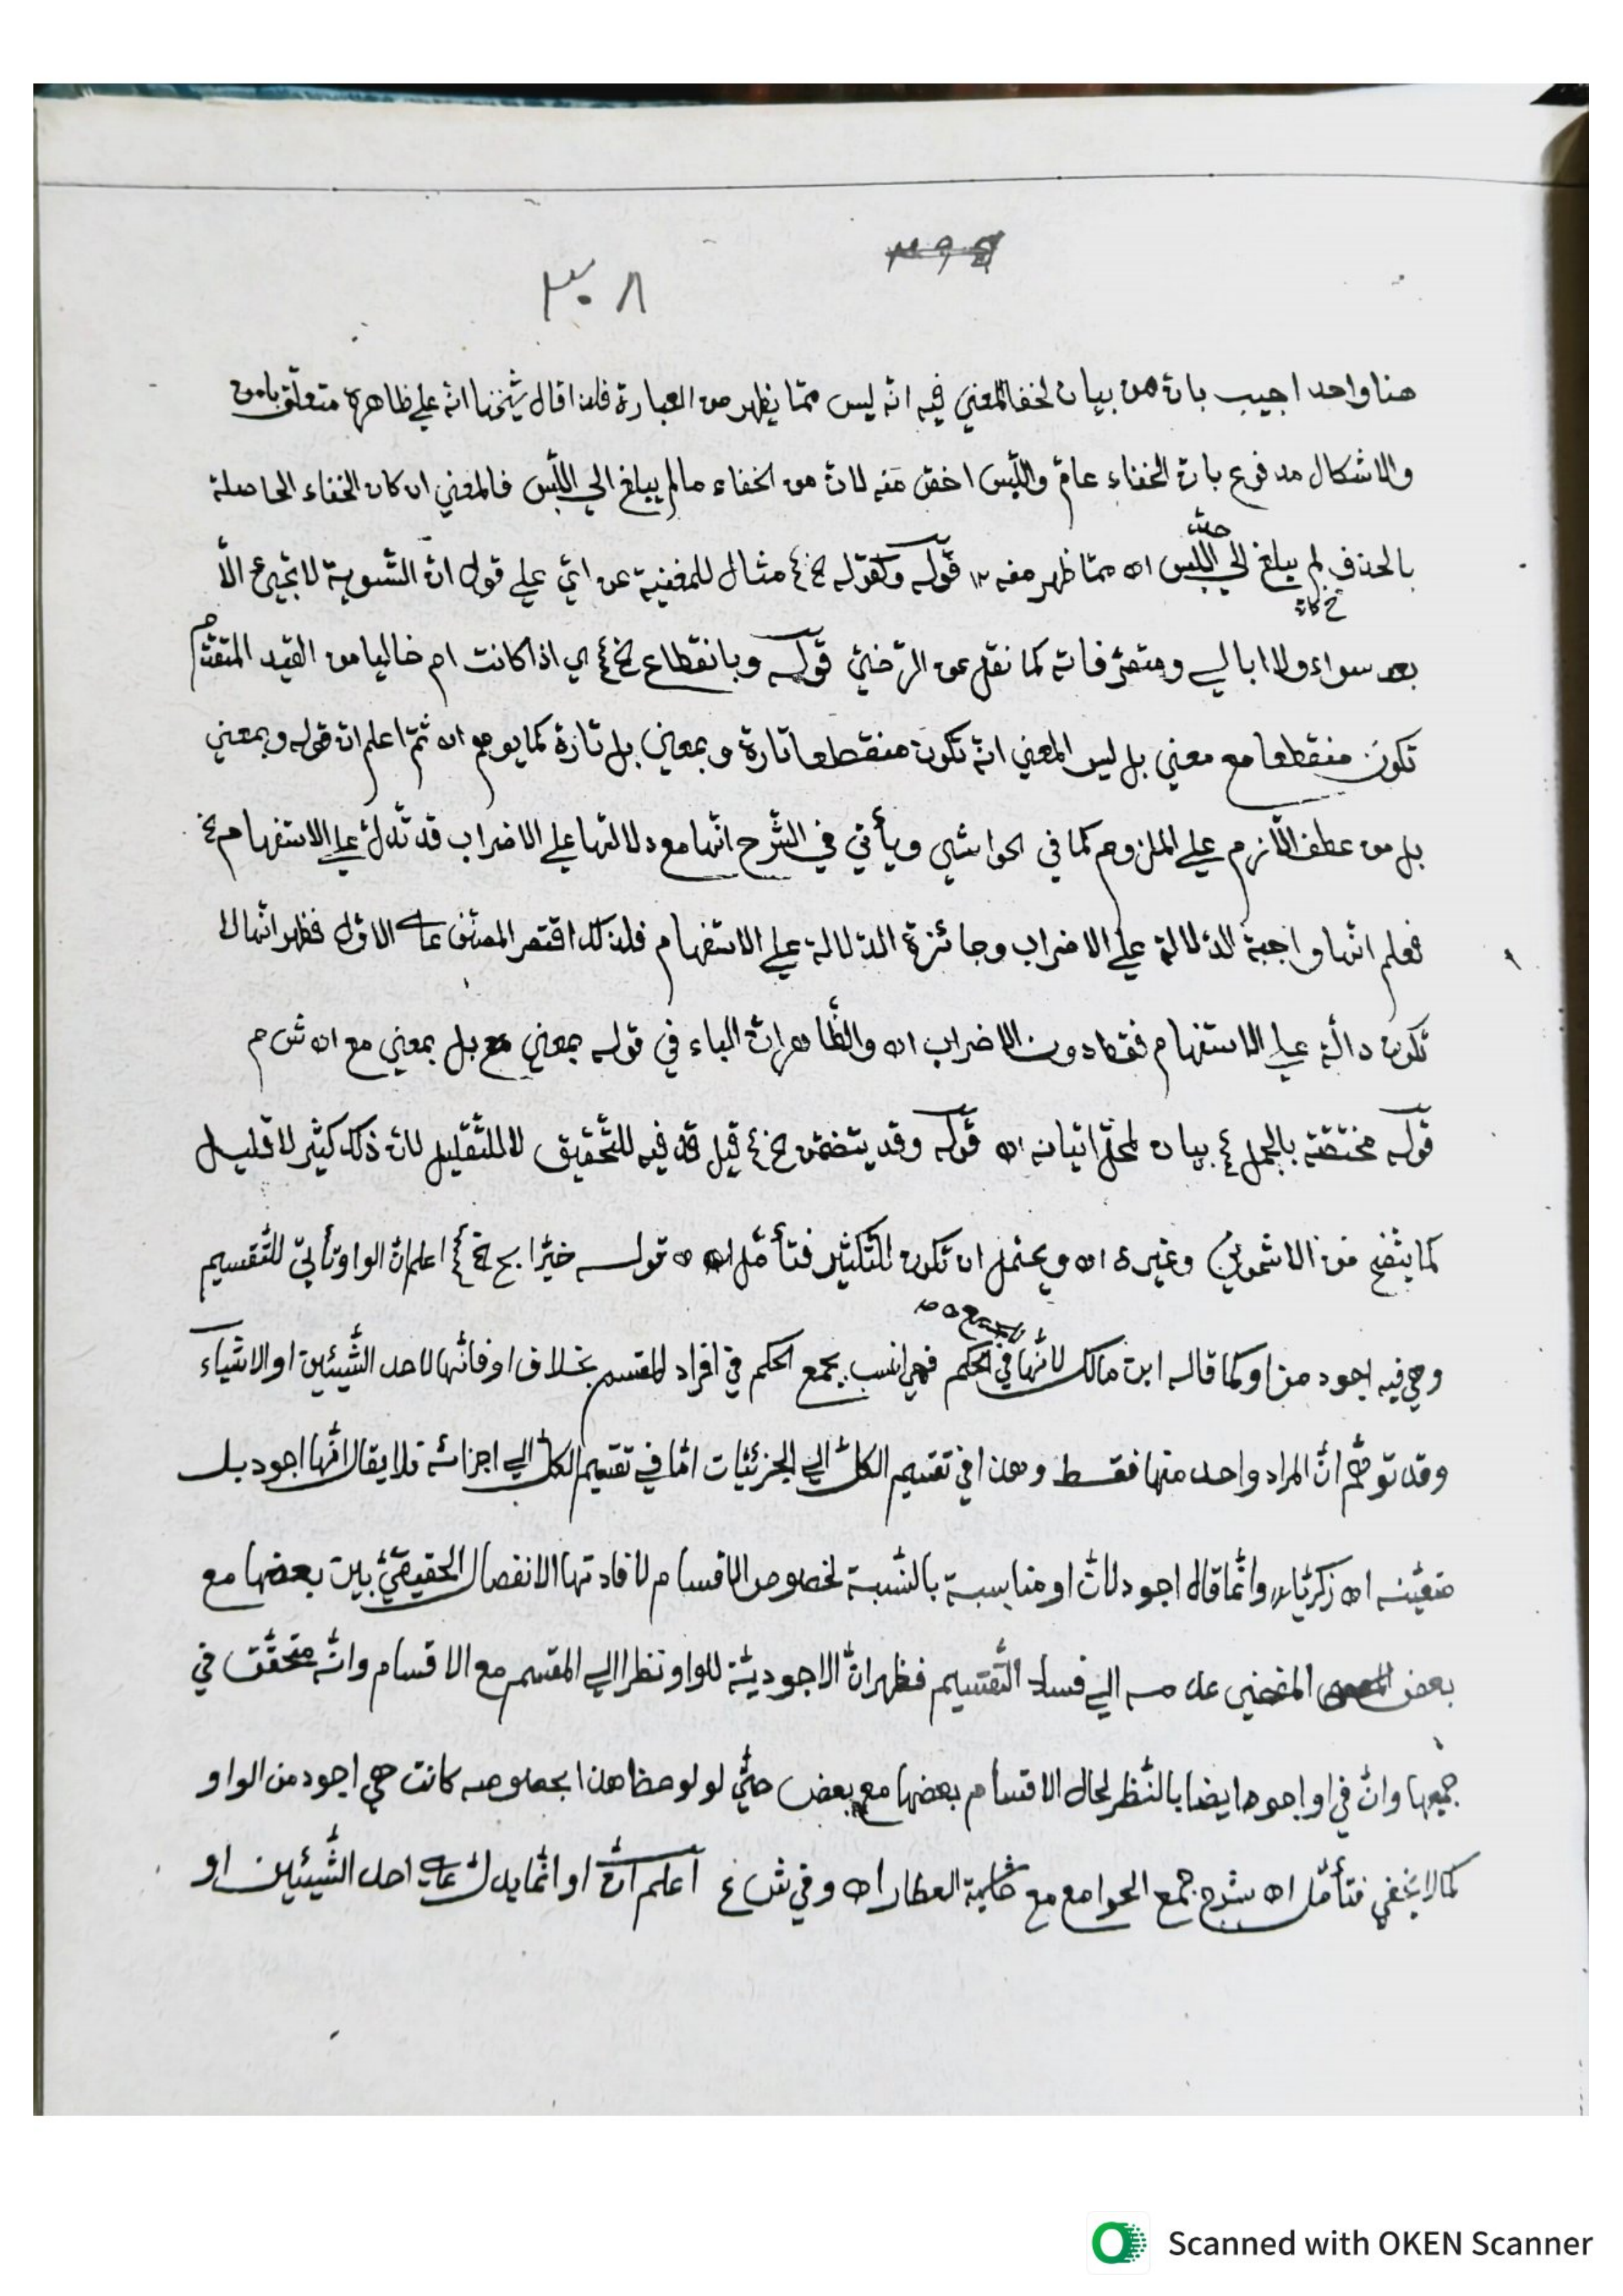 ٣٩٤
٣٠٨
هنا واحد اجيب بانّ من بيان لخفا المعني فيه انه ليس ممّا يظهر من العبارة فلذا قال شيخنا انه علي ظاهره متعلّق بامن
والاشكال مدفوع بانّ الخفاء عامّ واللّبس اخصّ منه لانّ من الخفاء ما لم يبلغ الي اللّبس فالمعني ان كان الخفاء الحاصلة
بالحذف لم يبلغ الي اللّبس اه ممّا ظهر منه ١٢ قوله وكقوله الخ ٤ مثال للمغنية عن ايّ علي قول انّ التّسوية لا تجيئ الّا
بعد سواء ولا ابالي ومتصرّفاته كما نقل عن الرّضيّ قوله وبانقطاع الخ ٤ اي اذا كانت ام خاليا من القيد المتقدّم
تكون منقطعا مع معني بل ليس المعني انّه تكون منقطعا تارة وبمعني بل تارة كما يوهم اه ثمّ اعلم انّ قوله وبمعني
بل من عطف اللّازم علي الملزوم كما في الحواشي ويأتي في الشّرح انّها مع دلالتها علي الاضراب قد تدلّ علي الاستفهام الخ
فعلم انّها واجبة الدّلالة علي الاضراب وجائزة الدّلالة علي الاستفهام فلذلك اقتصر المصنّف علي الاوّل فظهر انّها لا
تكون دالّة علي الاستفهام فقط دون الاضراب اه والظّاهر انّ الباء في قوله بمعني مع بل بمعني مع اه ش م
قوله مختصّة بالجمل ٤ بيان لمحلّ اتيانه اه قوله وقد يتضمّن الخ ٤ قيل قد فيه للتّحقيق لا للتّقليل لانّ ذلك كثير لا قليل
كما يتّضح من الاشموني وغيره اه ويحتمل ان تكون للتّكثير فتأمّل اه قوله خيّر ابح الخ ٤ اعلم انّ الواو تأتي للتّقسيم
وهي فيه اجود من او كما قاله ابن مالك لانّها في الحكم فهي انسب بجمع الحكم في افراد المقسم بخلاف او فانّها لاحد الشّيئين او الاشياء
وقد توهّم انّ المراد واحد منها فقط وهذا في تقسيم الكلّيّ الي الجزئيّات امّا في تقسيم الكلّ الي اجزائه فلا يقال انّها اجود بل
متعيّنه اه زكريّا وانّما قال اجود لانّ او مناسبة بالنّسبة لخصوص الاقسام لافادتها الانفصال الحقيقيّ بين بعضها مع
بعض المفضي الي فساد التّقسيم فظهر انّ الاجوديّة للواو نظرا الي المقسم مع الاقسام وانّه متحقّق في
جميعها وانّ في او اجود ايضا بالنّظر لحال الاقسام بعضها مع بعض حتّي لو لوحظ هذا بخصوصه كانت هي اجود من الواو
كما لا يخفي فتأمّل اه شرح جمع الجوامع مع حاشية العطّار اه وفي ش ع اعلم انّ او انّما يدلّ علي احد الشّيئين او
Scanned with OKEN Scanner